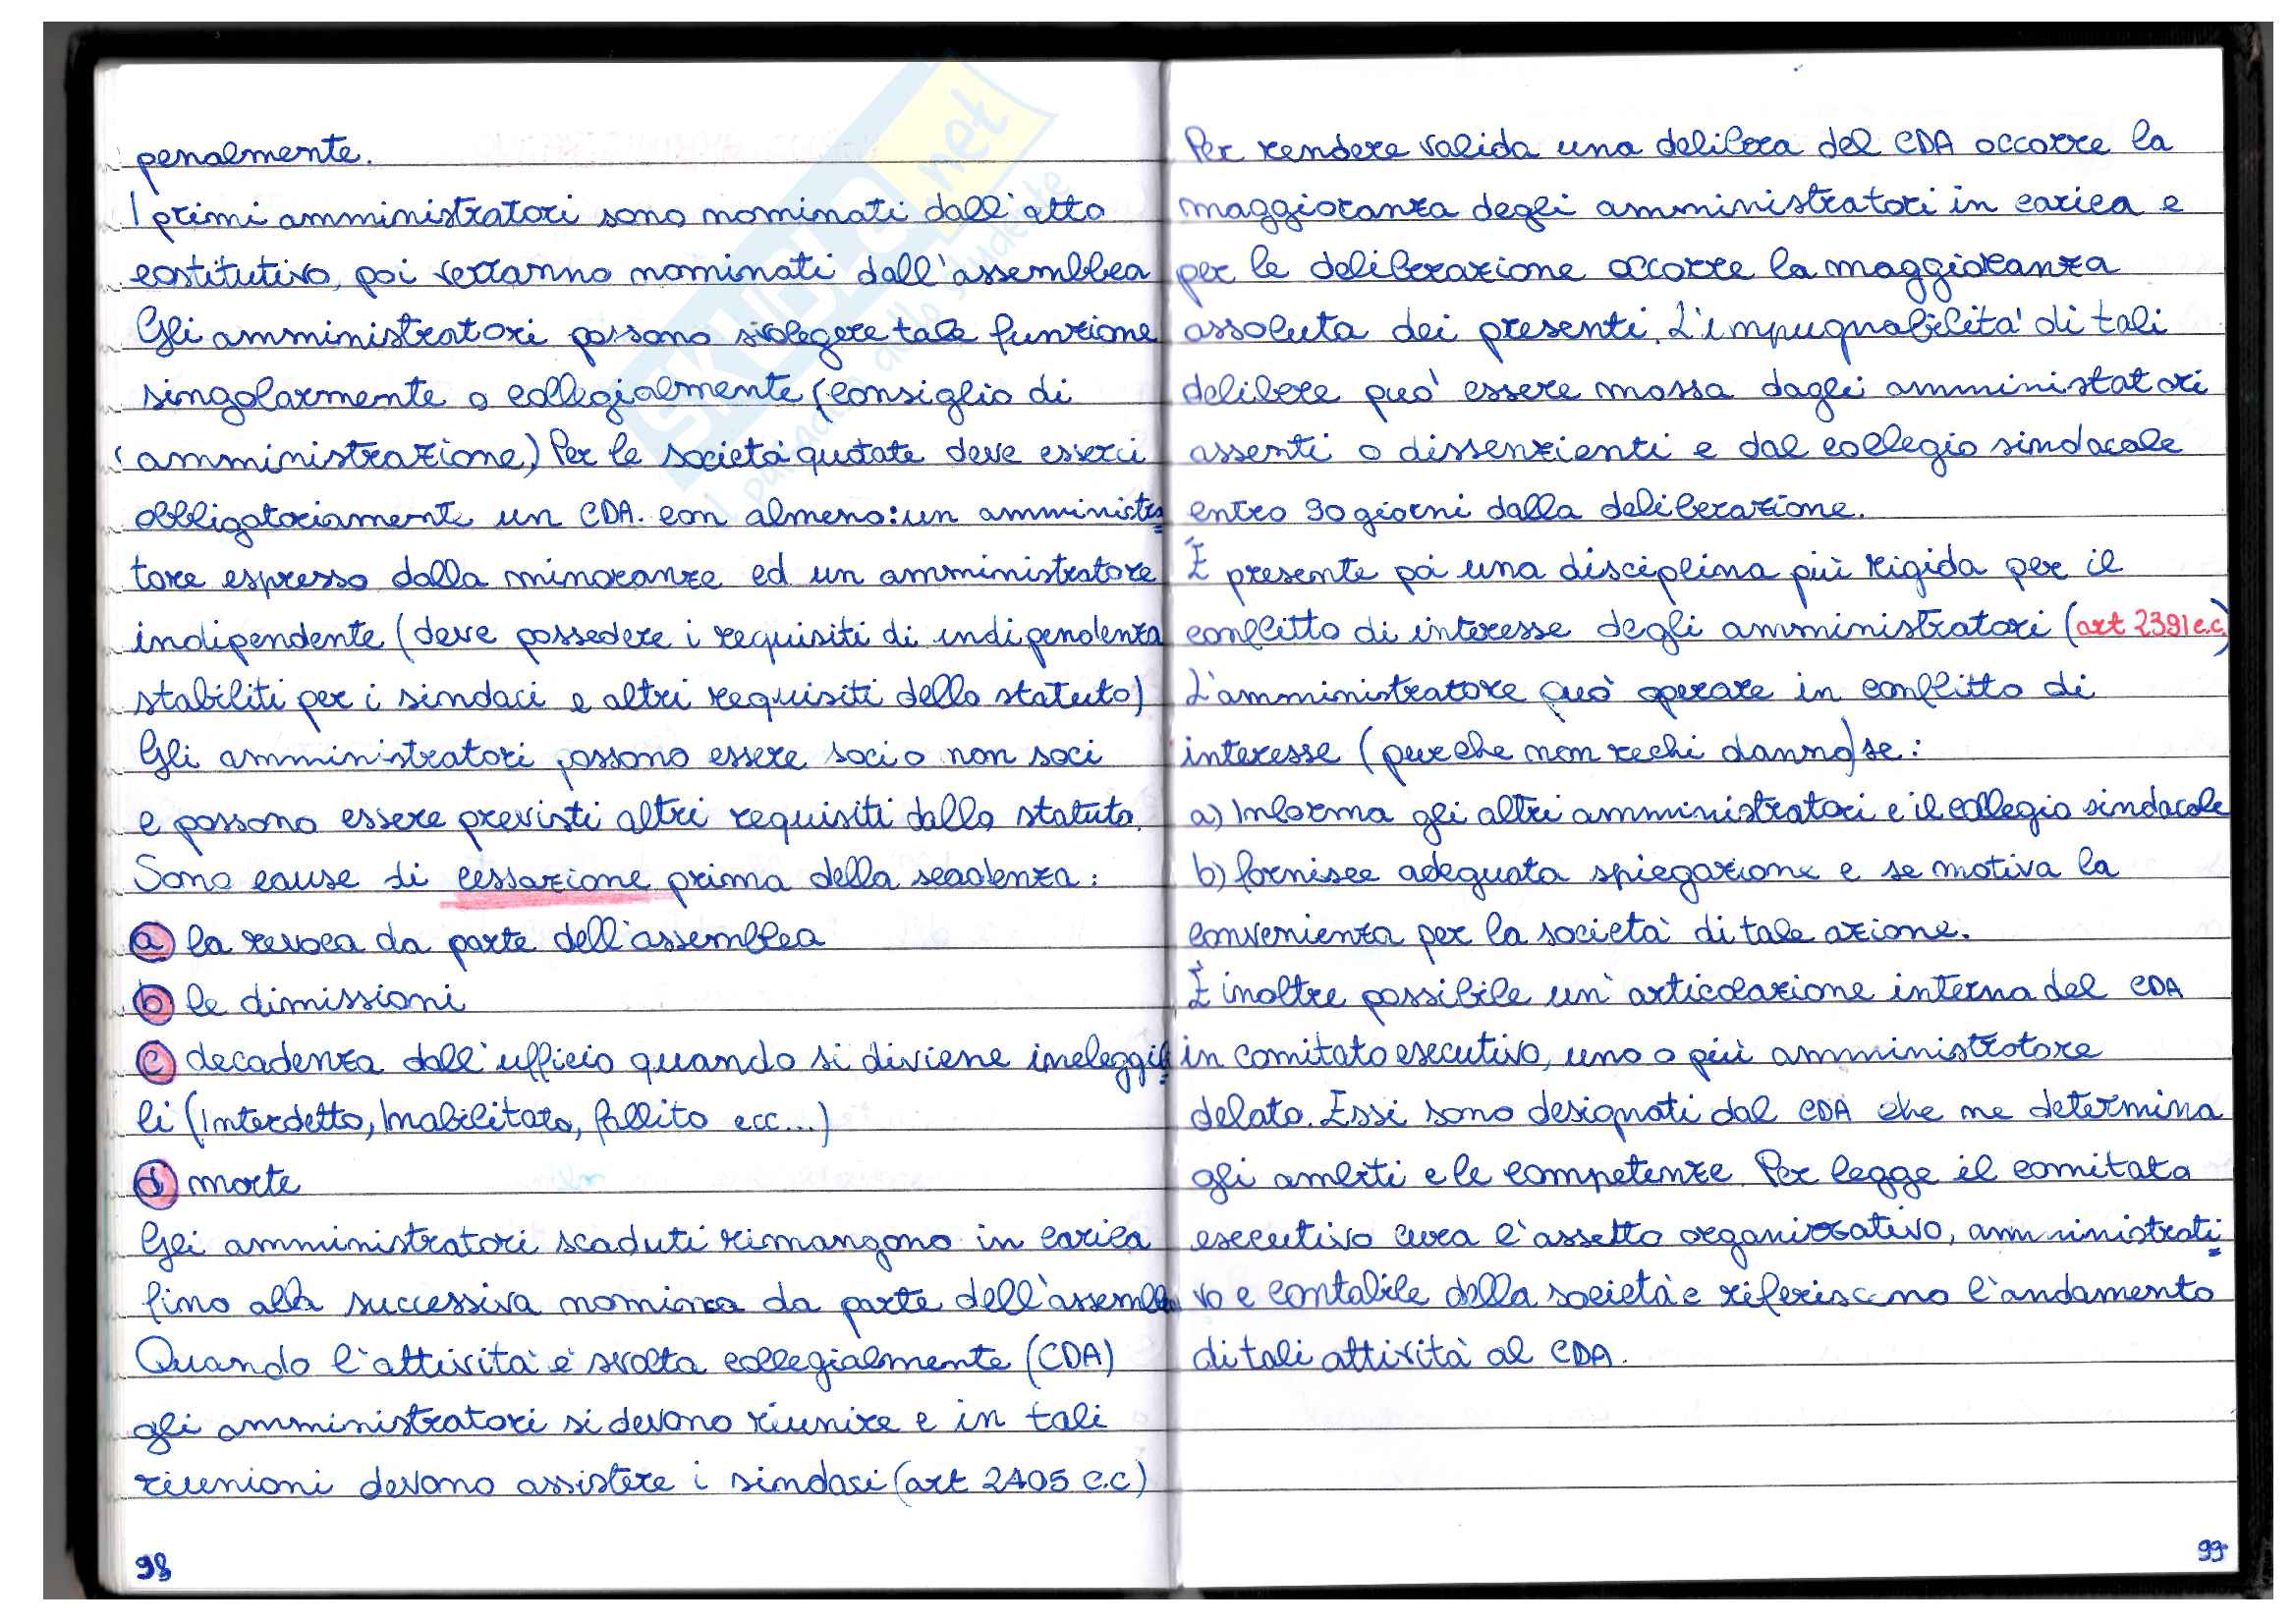 penalmente.
I primi amministratori sono nominati dall'atto
costitutivo, poi verranno nominati dall'assemblea
Gli amministratori possono svolgere tale funzione
singolarmente o collegialmente (consiglio di
amministrazione) Per le società quotate deve esserci
obbligatoriamente un CDA. con almeno: un amministra=
tore espresso dalla minoranze ed un amministratore
indipendente (deve possedere i requisiti di indipendenza
stabiliti per i sindaci e altri requisiti dello statuto)
Gli amministratori possono essere soci o non soci
e possono essere previsti altri requisiti dallo statuto.
Sono cause di cessazione prima della scadenza:
a) la revoca da parte dell'assemblea
b) le dimissioni
c) decadenza dall'ufficio quando si diviene ineleggib=
li (Interdetto, Inabilitato, fallito ecc...)
d) morte
Gli amministratori scaduti rimangono in carica
fino alla successiva nomina da parte dell'assemblea
Quando l'attività è svolta collegialmente (CDA)
gli amministratori si devono riunire e in tali
riunioni devono assistere i sindaci (art 2405 c.c)
98
Per rendere valida una delibera del CDA occorre la
maggioranza degli amministratori in carica e
per le deliberazione occorre la maggioranza
assoluta dei presenti. L'impugnabilità di tali
delibere può essere mossa dagli amministatori
assenti o dissenzienti e dal collegio sindacale
entro 90 giorni dalla deliberazione.
È presente poi una disciplina più rigida per il
conflitto di interesse degli amministratori (art 2391 c.c.)
L'amministratore può operare in conflitto di
interesse (purche non rechi danno) se:
a) Informa gli altri amministratori e il collegio sindacale
b) fornisce adeguata spiegazione e se motiva la
convenienza per la società di tale azione.
È inoltre possibile un'articolazione interna del CDA
in comitato esecutivo, uno o più amministratore
delato. Essi sono designati dal CDA che ne determina
gli ambiti e le competenze. Per legge il comitato
esecutivo cura l'assetto organizzativo, amministrati=
vo e contabile della società e riferiscono l'andamento
di tali attività al CDA.
99
SKUOLA.net